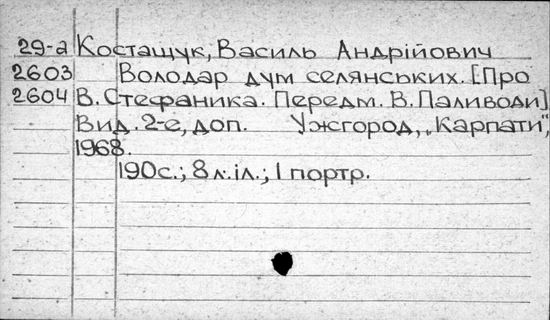 29-а Костащук, Василь Андрійович
2603 Володар дум селянських. [Про
2604 В. Стефаника. Передм. В. Паливоди]
Вид. 2-е, доп. Ужгород, „Карпати“,
1968.
190с.; 8 л. іл.; 1 портр.